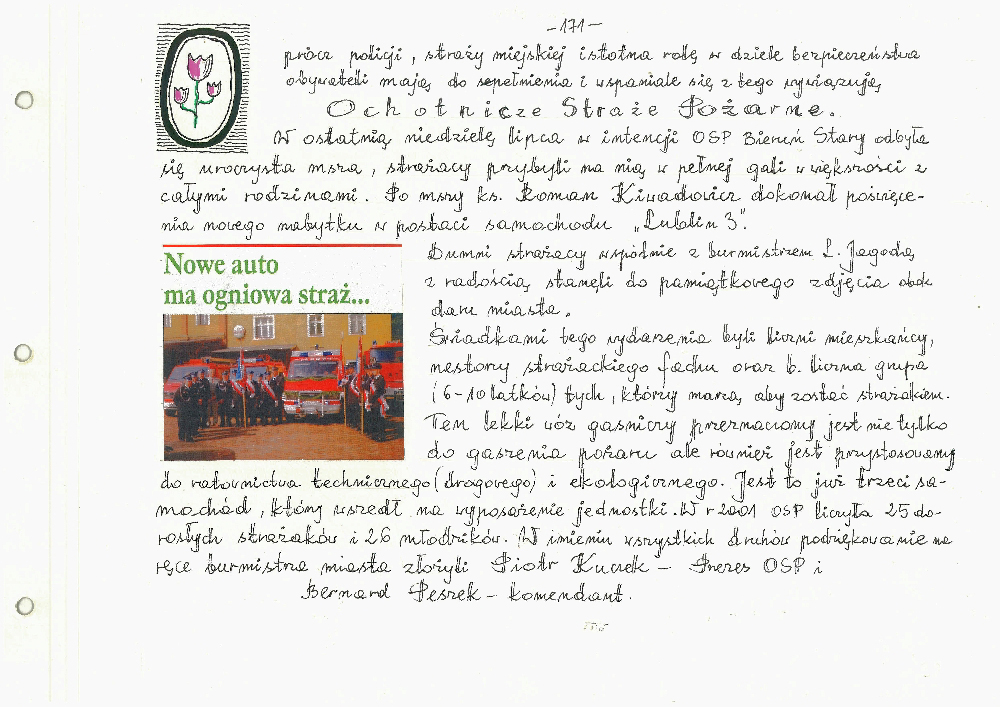 -171-
prócz policji, straży miejskiej istotną rolę w dziele bezpieczeństwa
obywateli mają do spełnienia i wspaniale się z tego wywiązują
Ochotnicze Straże Pożarne.
W ostatnią niedzielę lipca w intencji OSP Bieruń Stary odbyła
się uroczysta msza, strażacy przybyli na nią w pełnej gali w większości z
całymi rodzinami. Po mszy ks. Roman Kiwadowicz dokonał poświęce-
nia nowego nabytku w postaci samochodu „Lublin 3".
Nowe auto
ma ogniowa straż...
Dumni strażacy wspólnie z burmistrzem L. Jagodą
z radością stanęli do pamiątkowego zdjęcia obok
daru miasta.
Świadkami tego wydarzenia byli liczni mieszkańcy,
nestorzy strażackiego fachu oraz b. liczna grupa
(6-10 latków) tych, którzy marzą, aby zostać strażakiem.
Ten lekki wóz gaśniczy przeznaczony jest nie tylko
do gaszenia pożaru ale również jest przystosowany
do ratownictwa technicznego (drogowego) i ekologicznego. Jest to już trzeci sa-
mochód, który wszedł na wyposażenie jednostki. W r 2001 OSP liczyła 25 do-
rosłych strażaków i 26 młodzików. W imieniu wszystkich druhów podziękowanie na
ręce burmistrza miasta złożyli Piotr Kucek - Prezes OSP i
Bernard Peszek - komendant.